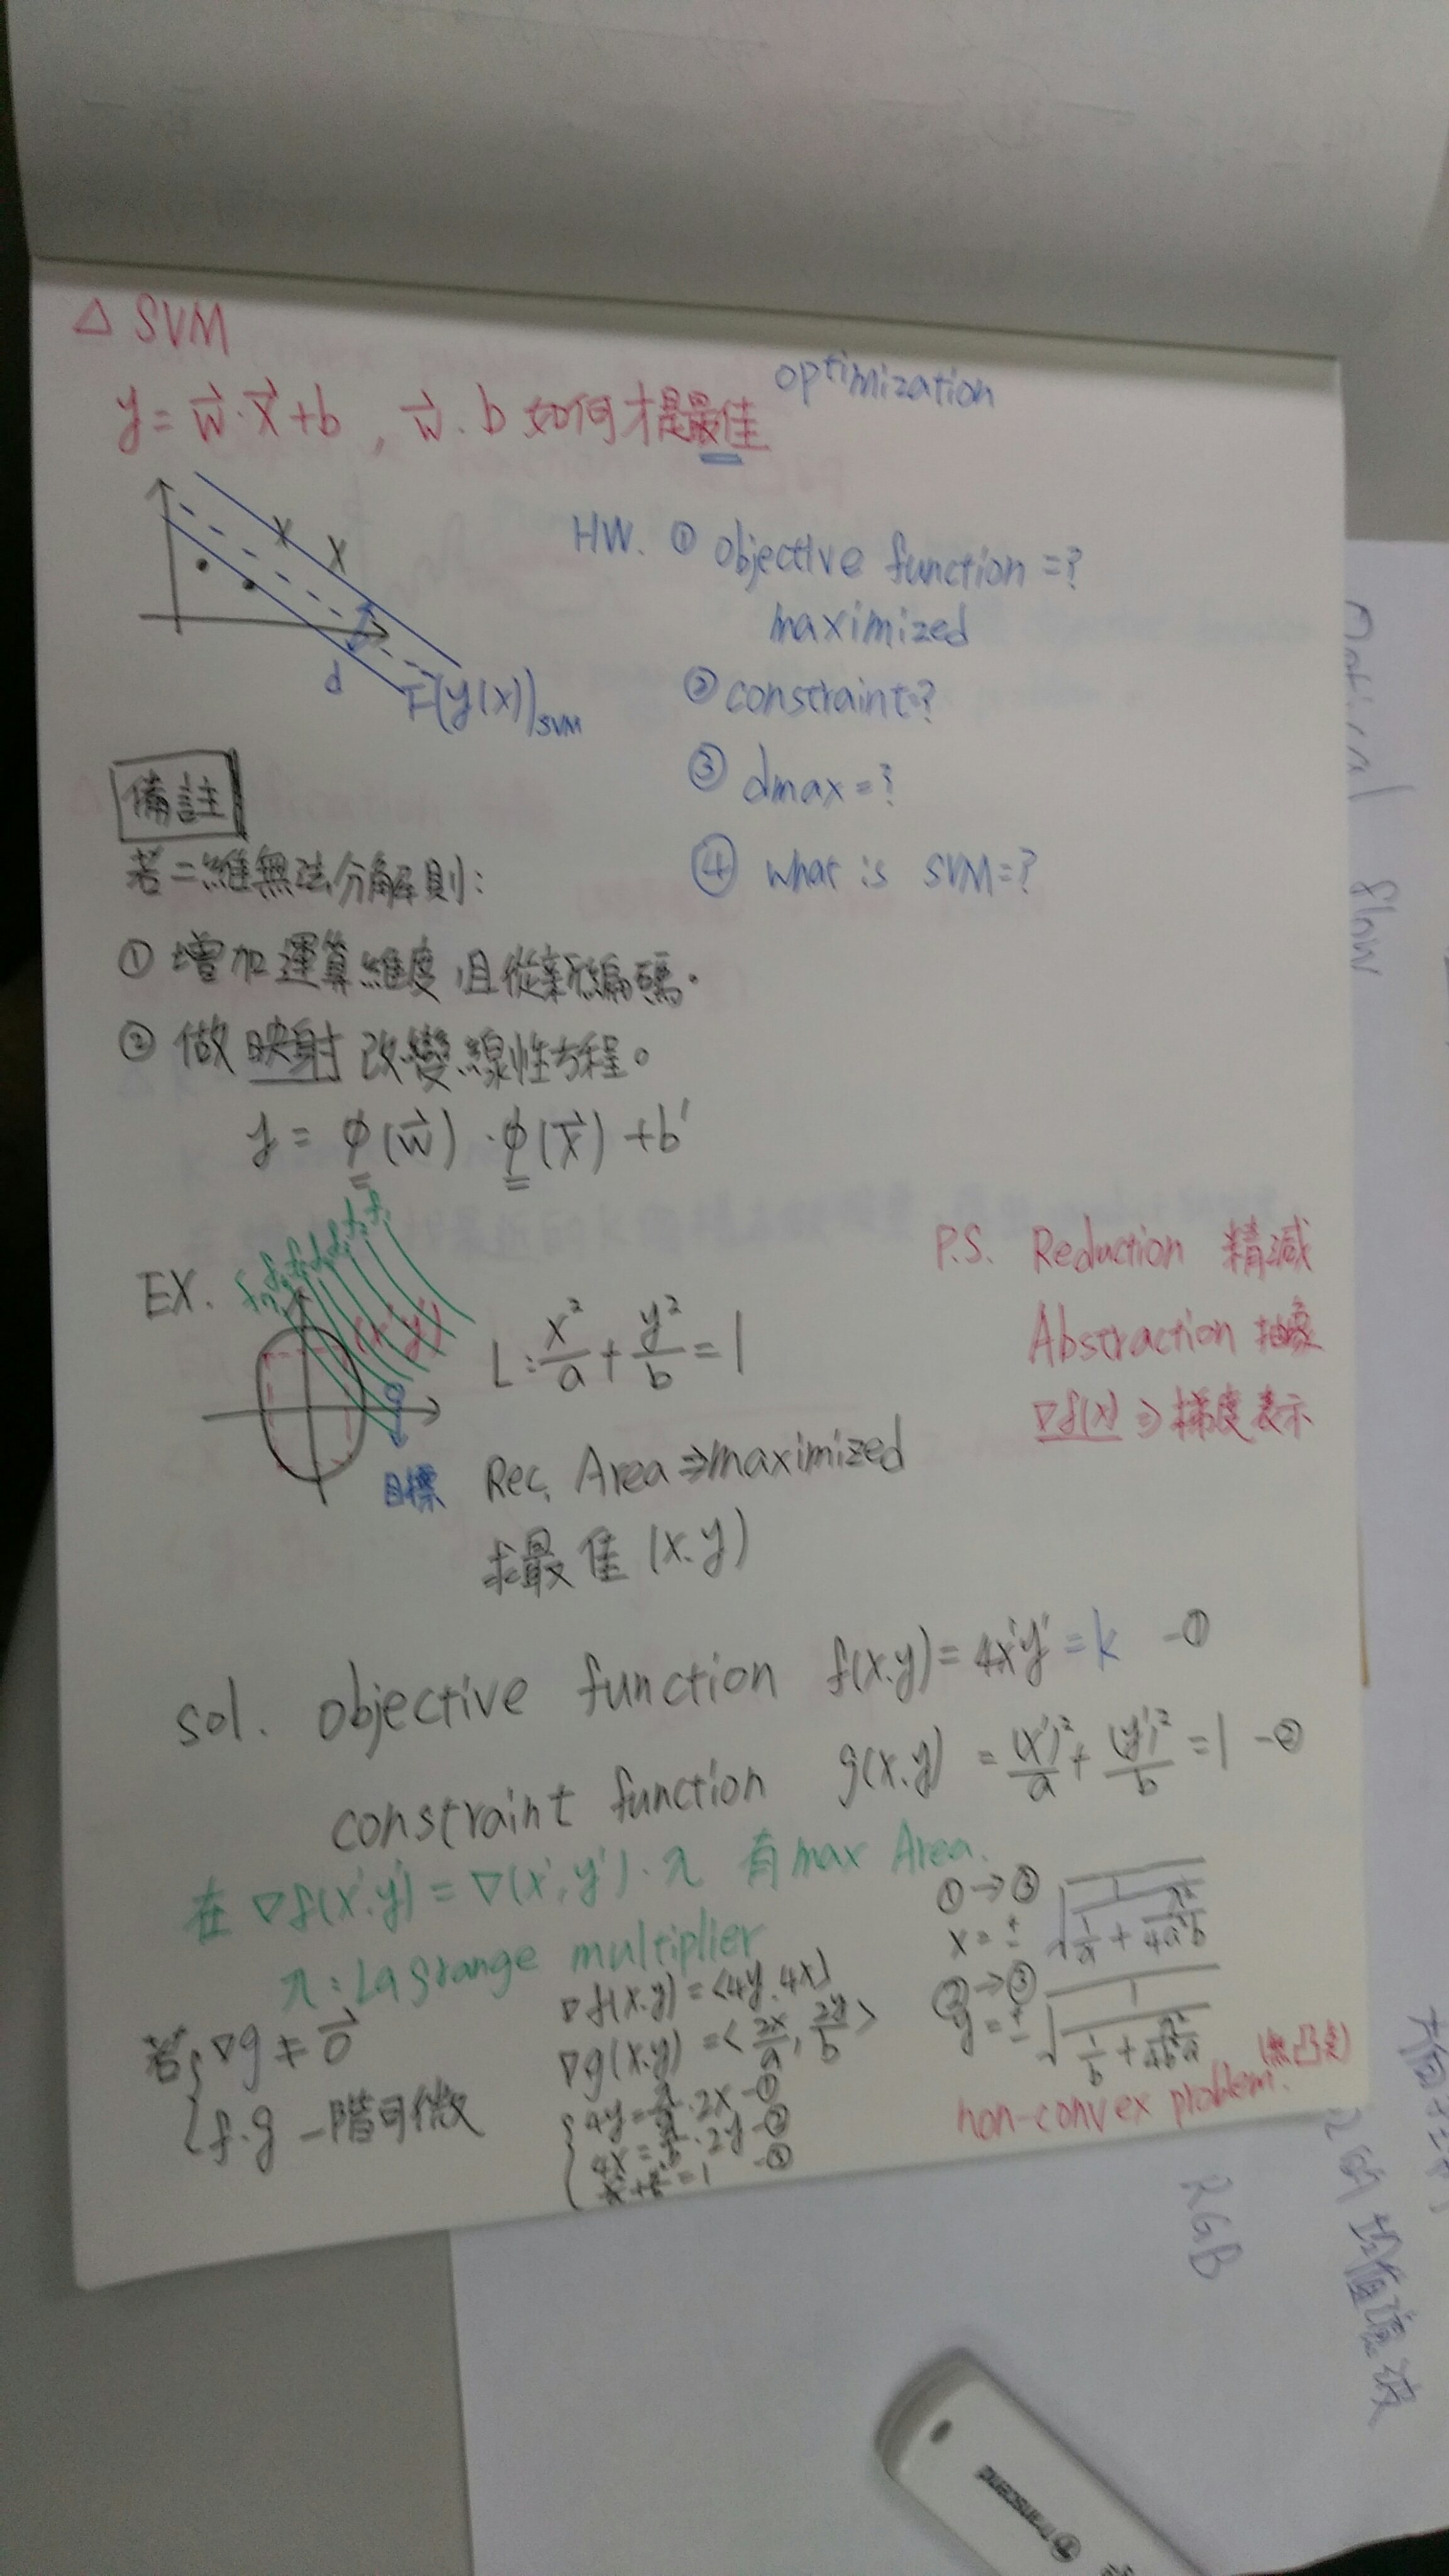 △ SVM
y = w⃗·x⃗+b , w⃗.b 如何才是最佳 optimization
d
F(y(x))SVM
HW. ① objective function =?
maximized
② constraint=?
③ dmax=?
④ what is SVM=?
備註
若二維無法分解則:
① 增加運算維度且從新編碼。
② 做映射改變線性方程。
y = φ(w⃗)·φ(x⃗)+b'
EX.
(x'y')
目標
L: x²/a + y²/b = 1
Rec. Area ⇒ maximized
求最佳 (x.y)
P.S. Reduction 精減
Abstraction 抽象
∇f(x) ⇒ 梯度表示
sol. objective function f(x.y)= 4x'y' = k -①
constraint function g(x.y) = (x')²/a + (y')²/b = 1 -②
在 ∇f(x'.y') = ∇(x',y')·λ 有 max Area.
λ: Lagrange multiplier
若{ ∇g ≠ 0⃗
f.g 一階可微
∇f(x.y) = <4y.4x>
∇g(x.y) = <2x/a, 2y/b>
{ 4y = λ/a·2x -①
4x = λ/b·2y -②
=1 -③
①→③
x = ± √(1/(1/a + λ²/4a²b))
②→③
y = ± √(1/(1/b + λ²/4b²a))
non-convex problem.
Optical flow
RGB
Transcend